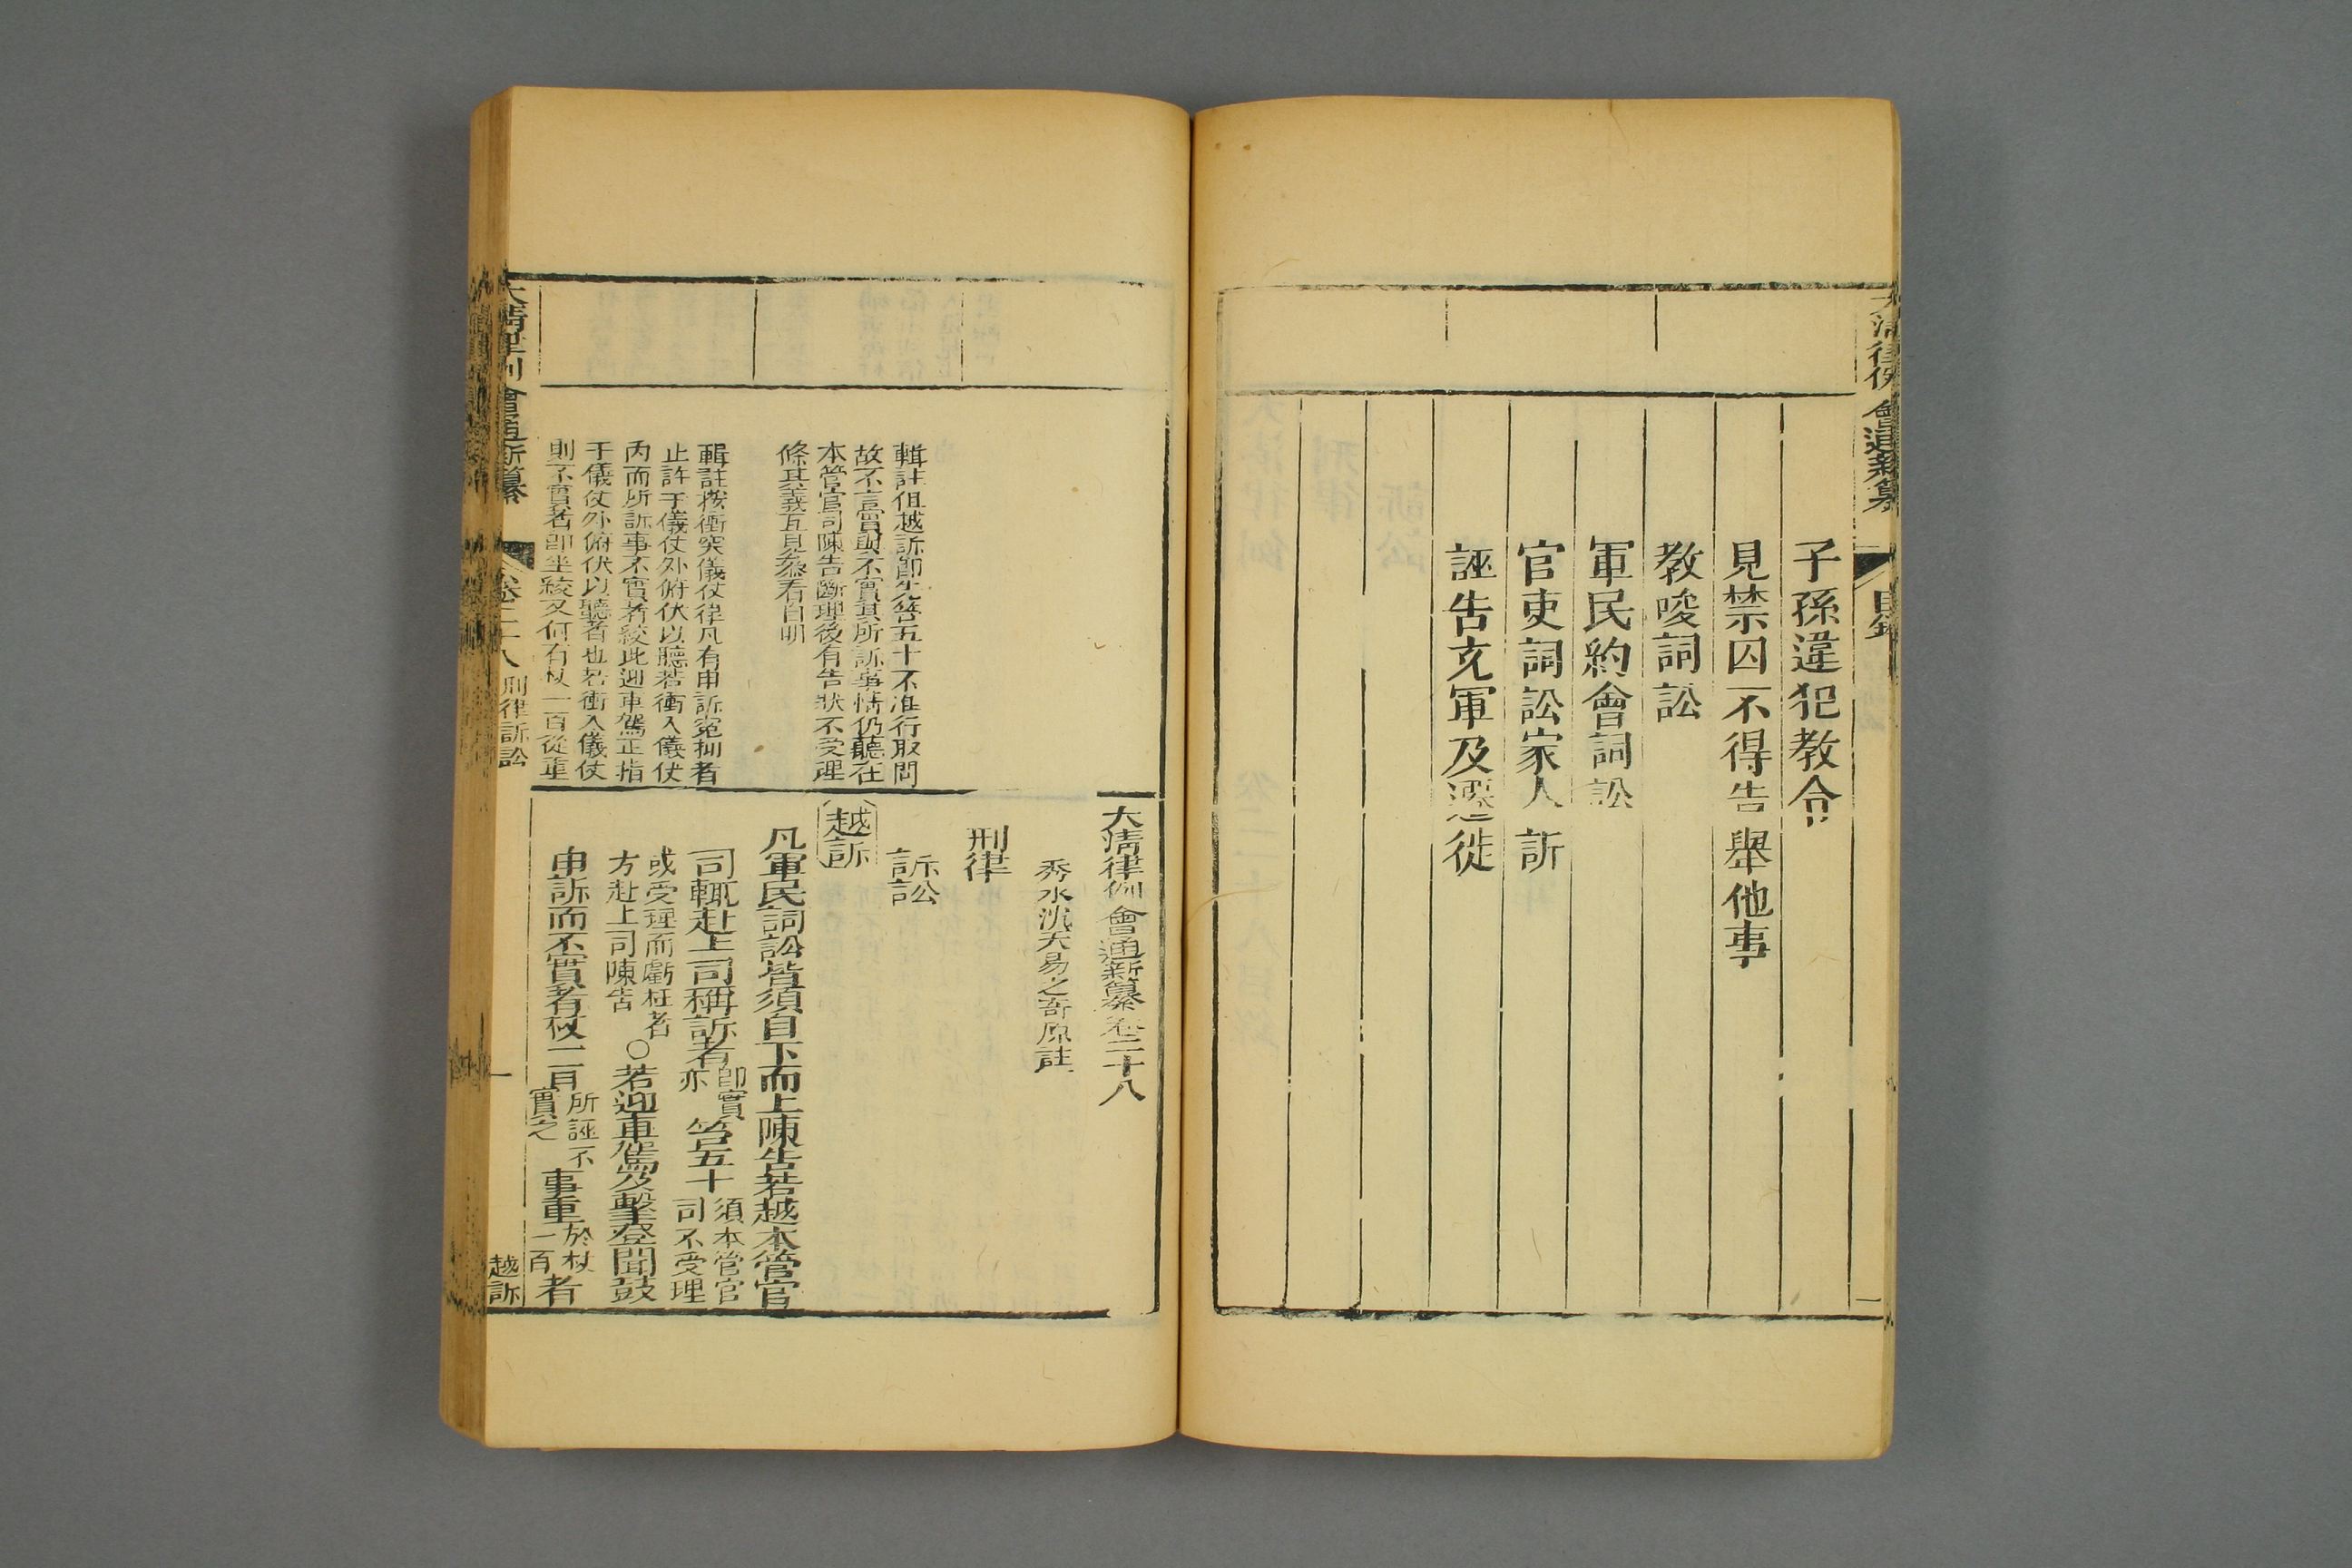 大清律例會通新纂
目錄
一
子孫違犯教令
見禁囚不得告舉他事
教唆詞訟
軍民約會詞訟
官吏詞訟家人訴
誣告充軍及遷徙
輯註但越訴卽先笞五十不准行取問
故不言實與不實其所訴事情仍聽在
本管官司陳告斷理後有告狀不受理
條其義互見叅看自明
輯註按衝突儀仗律凡有申訴寃抑者
止許于儀仗外俯伏以聽若衝入儀仗
內而所訴事不實者絞此迎車駕正指
于儀仗外俯伏以聽者也若衝入儀仗
則不實者卽坐絞又何有杖一百從重
大清律例會通新纂卷二十八
秀水沈天易之吾原註
刑律
訴訟
越訴
凡軍民詞訟皆須自下而上陳告若越本管官
司輒赴上司稱訴者卽實亦笞五十須本管官司不受理
或受理而虧枉者方赴上司陳告○若迎車駕及擊登聞鼓
申訴而不實者杖一百所誣不實之事重於杖一百者
大清律例會通新纂
卷二十八
刑律訴訟
一
越訴